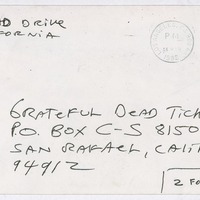 DRIVE
FORNIA
PM
GRATEFUL DEAD TICK
P.O. BOX C-S 8150
SAN RAFAEL, CALI
94912
2 FO